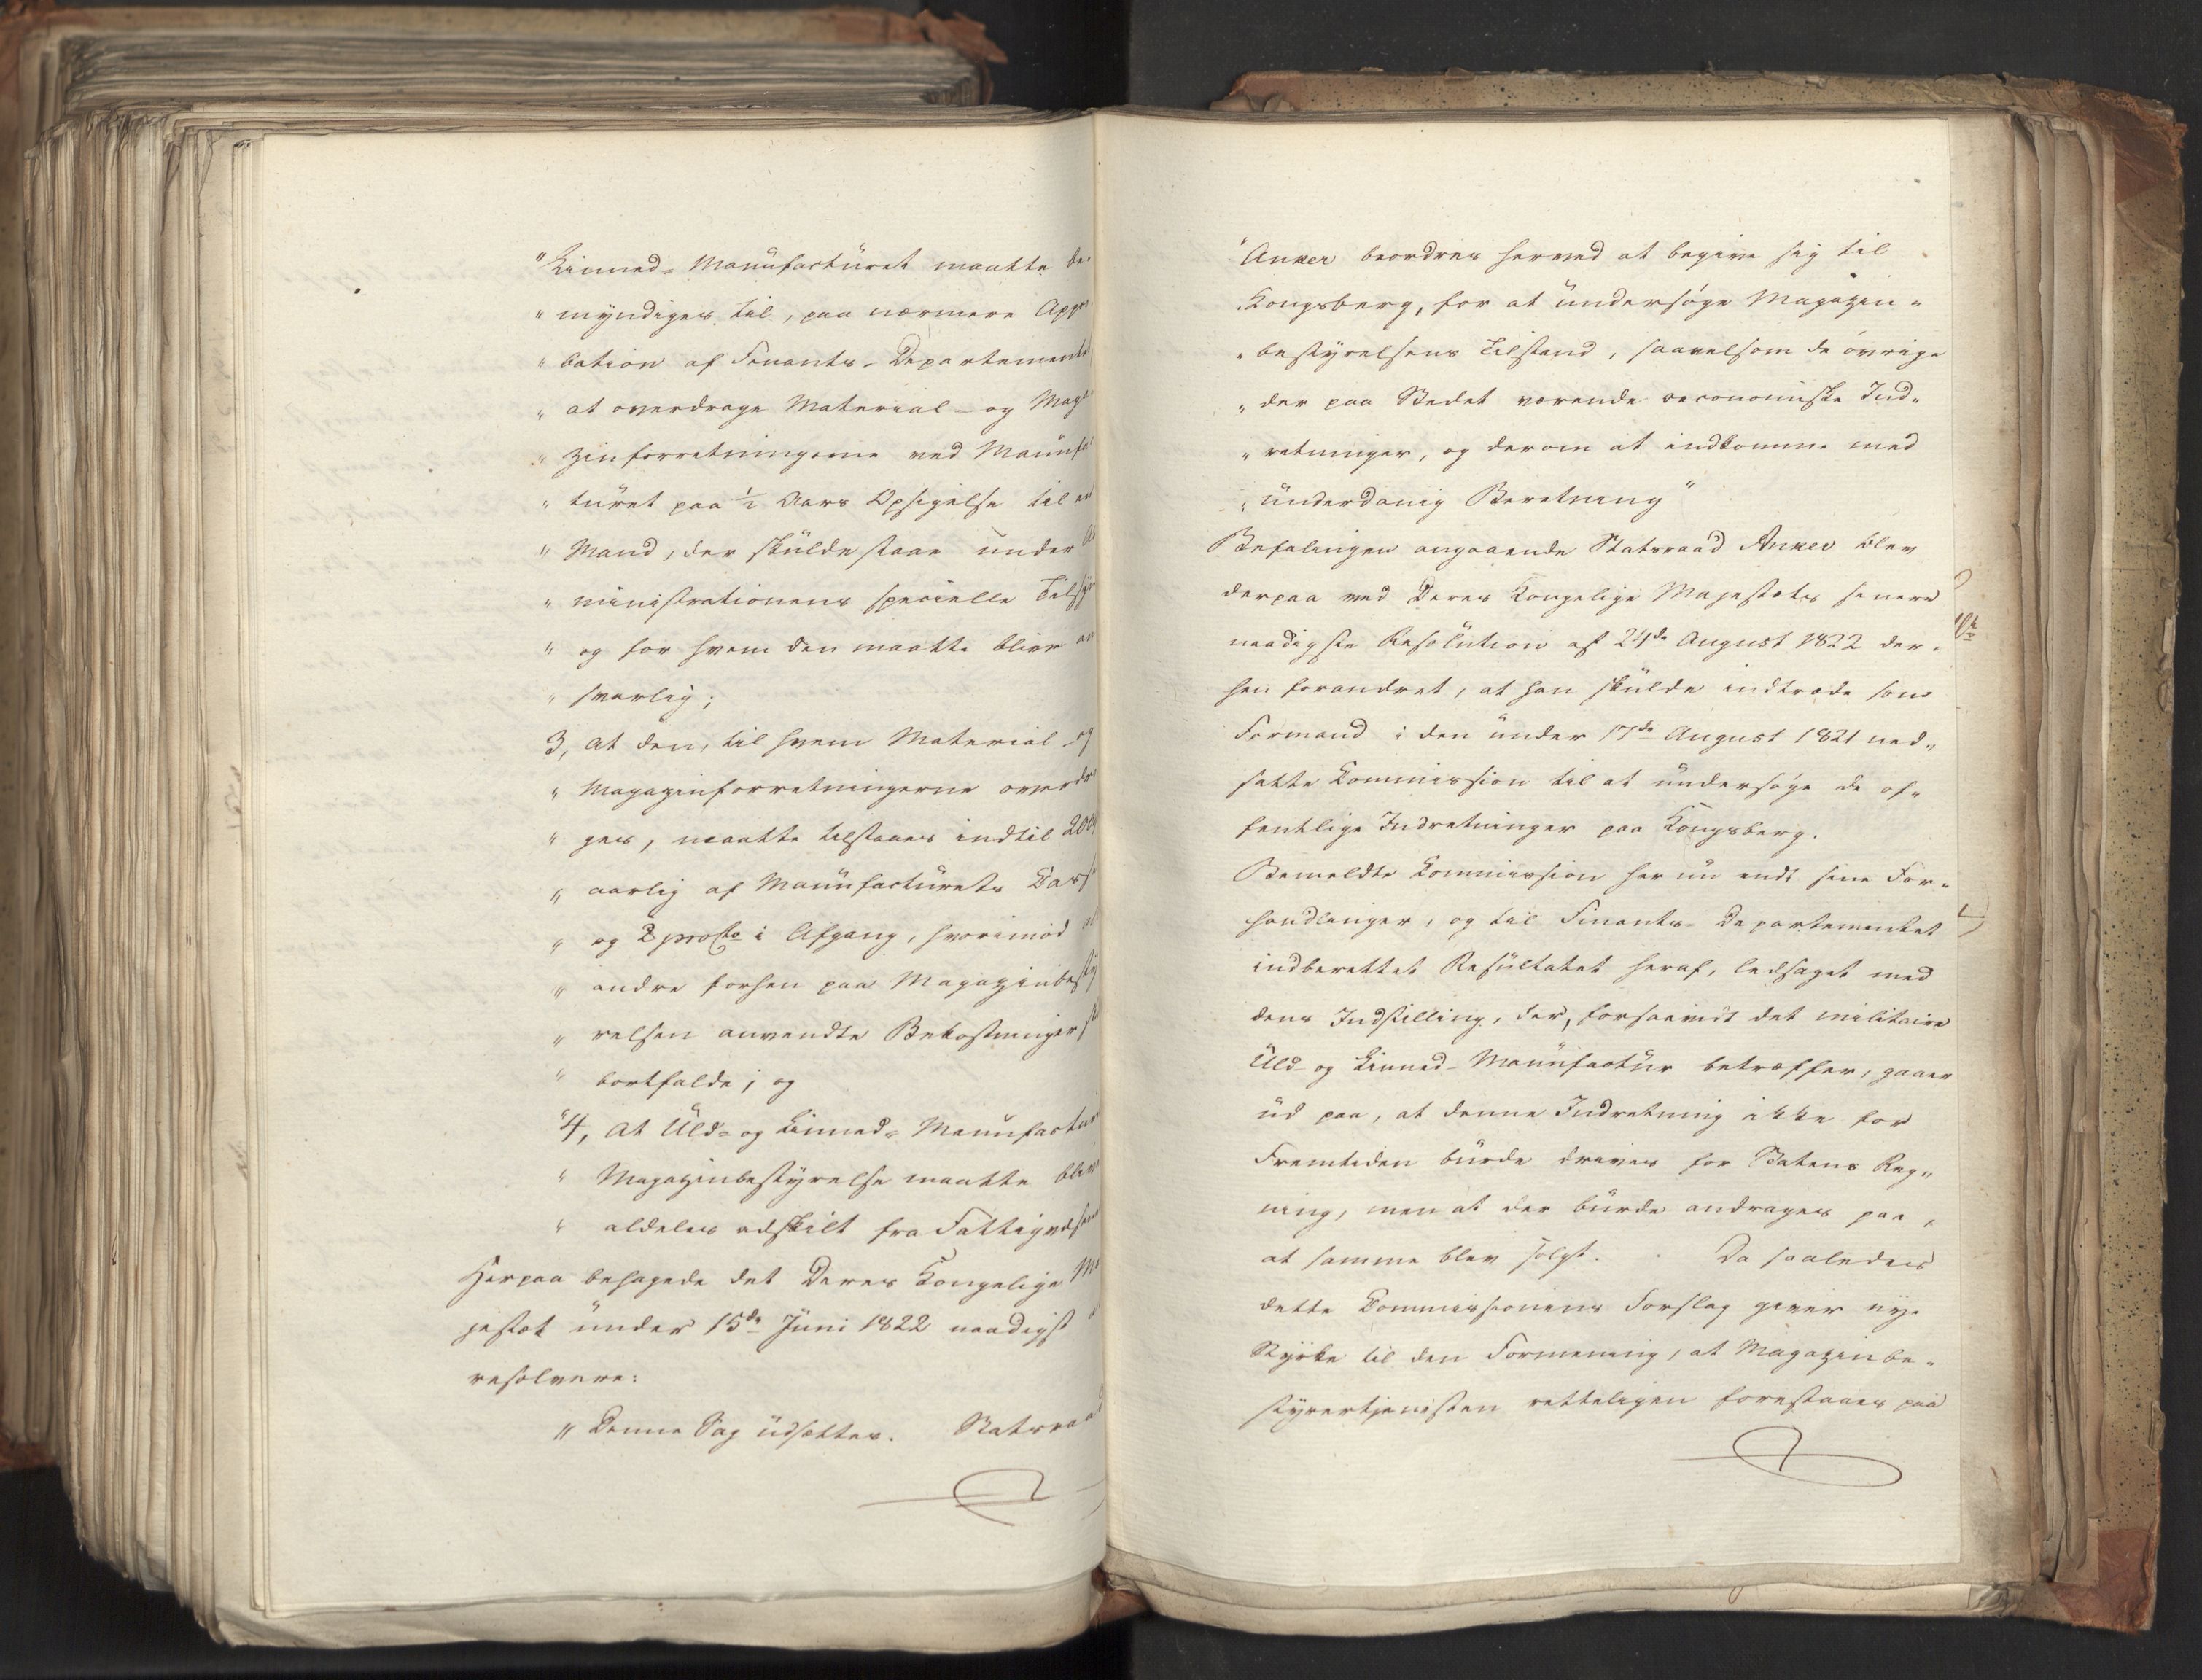 "Linned- Manufacturet maatte be-
"myndiges til, paa nærmere Appro-
"bation af Finants-Departementet
"at overdrage Material- og Maga
"zinforretningerne ved Manufac
"turet paa ½ Aars Opsigelse til en
"Mand, der skulde staae under Ad
"ministrationens specielle Tilsyn
"og for hvem den maatte blive an
"svarlig;
3, at den, til hvem Material- og
"Magazinforretningerne overdra
"ges, maatte tilstaaes indtil 200
"aarlig af Manufacturets Casse
"og 2 procto i Afgang, hvorimod al
"andre forhen paa Magazinbesty
"relsen anvendte Bekostninger sk
"bortfalde; og
"4, at Uld- og Linned- Manufactur
"Magazinbestyrelse maatte blive
"aldeles adskilt fra Fattigvæsenet
Herpaa behagede det Deres Kongelige Ma
jestæt under 15de Juni 1822 naadigst
resolvere:
"Denne Sag udsættes. Statsraad
"Anker beordres herved at begive sig til
"Kongsberg, for at undersøge Magazin-
"bestyrelsens Tilstand, saavelsom de øvrige
"der paa Stedet værende oeconomiske Ind-
"retninger, og derom at indkomme med
"underdanig Beretning"
Befalingen angaaende Statsraad Anker blev
derpaa ved Deres Kongelige Majestæts senere
naadigste Resolution af 24de August 1822 der-
hen forandret, at han skulde indtræde som
Formand i den under 17de August 1821 ned-
satte Commission til at undersøge de of-
fentlige Indretninger paa Kongsberg.
Bemeldte Commission har nu endt sine For-
handlinger, og til Finants-Departementet
indberettet Resultatet heraf, ledsaget med
dens Indstilling, der, forsaavidt det militaire
Uld- og Linned-Manufactur betræffer, gaaer
ud paa, at denne Indretning ikke for
Fremtiden burde drives for Statens Reg-
ning, men at der burde andrages paa,
at samme blev solgt. Da saaledes
dette Commissionens Forslag giver nye
Styrke til den Formening, at Magazinbe-
styrertjenesten retteligen forestaaes paa